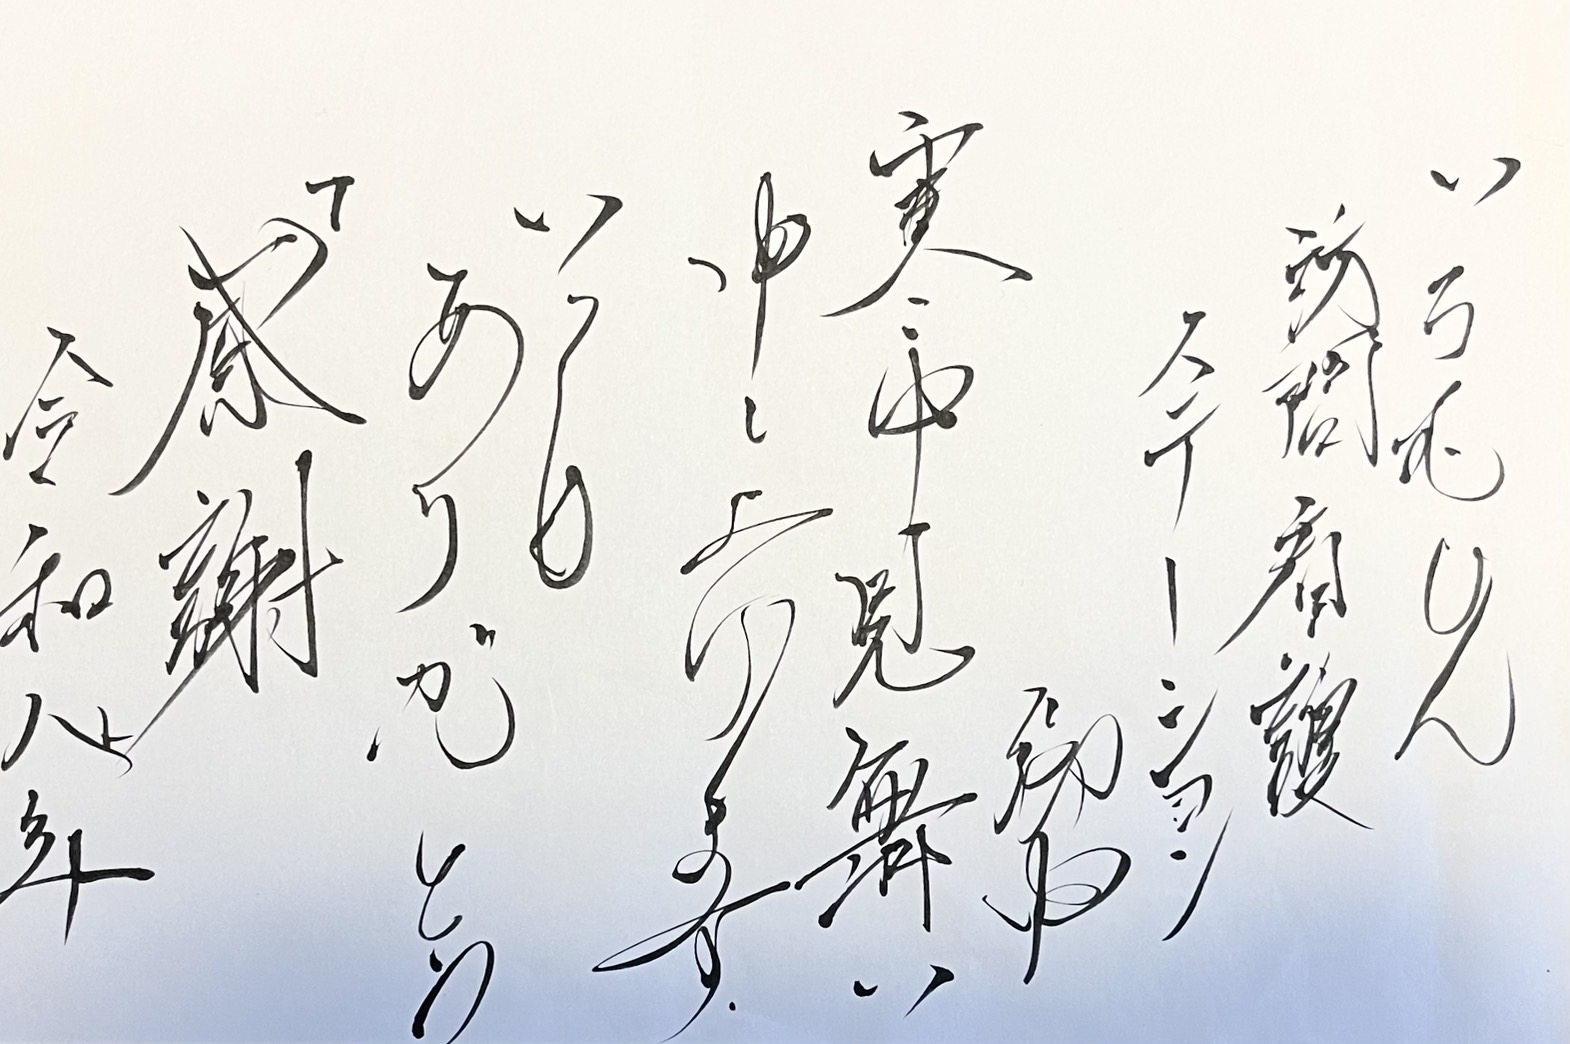 いろえりん
訪問看護
ステーション
御中
寒中見舞い
申し上げます。
いつも
ありがとう
感謝
令和八年